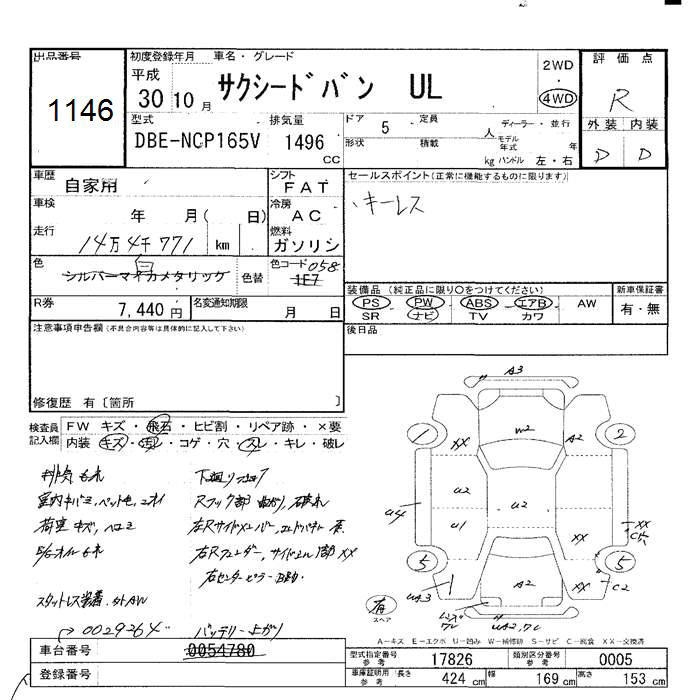 出品番号
1146
初度登録年月 車名・グレード
平成
30 10 月
サクシードバン UL
2WD
4WD
評価点
R
外装 内装
D D
型式
DBE-NCP165V
排気量
1496
CC
ドア 5 定員 人
ディーラー・並行
形状 積載 kg
モデル年式 年
ハンドル 左・右
車歴
自家用
シフト
FAT
車検
年 月( 日)
冷房
AC
走行
14万4千771 km
燃料
ガソリン
色
白
シルバーマイカメタリック 色替
色コード 058
1E7
R券
7,440 円
名変通知期限
月 日
セールスポイント(正常に機能するものに限ります)
、キーレス
装備品(純正品に限り○をつけてください)
PS PW ABS エアB AW
SR ナビ TV カワ
新車保証書
有・無
後日品
注意事項申告欄(不具合内容等は具体的に記入して下さい)
修復歴 有〔箇所 〕
検査員
記入欄
FW キズ・飛石・ヒビ割・リペア跡・×要
内装 キズ・汚レ・コゲ・穴・スレ・キレ・破レ
荷室 キズ、ヘコミ
スタットレス装着、外AW
→0029264
バッテリー上がり
車台番号
0054780
登録番号
A3
1
2
XX
W2
A2
U2
U2
U1
U4
XX
5
5
XX
XX
C2
UA3
A2
UA2,
有
スペア
A-キズ E-エクボ U-凹み W-補修跡 S-サビ C-腐食 XX-交換済
型式指定番号
参考
17826
類別区分番号
参考
0005
車庫証明用
参考
長さ 424 cm 幅 169 cm 高さ 153 cm